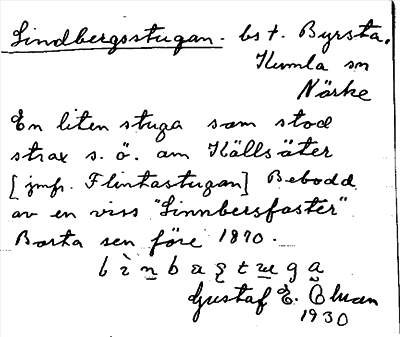 Lindbergsstugan. bst. Byrsta,
Kumla sn
Närke
En liten stuga som stod
strax s. ö. om Källsäter
[jmfr. Flintastugan] Bebodd
av en viss "Linnbersfaster"
Borta sen före 1870.
Gustaf E. Öhman
1930